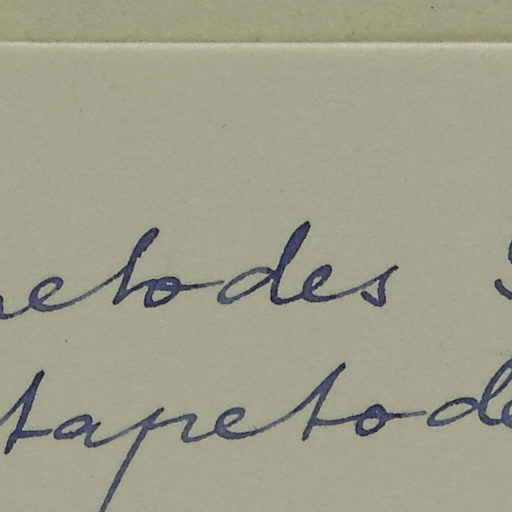 etodes
tapetode